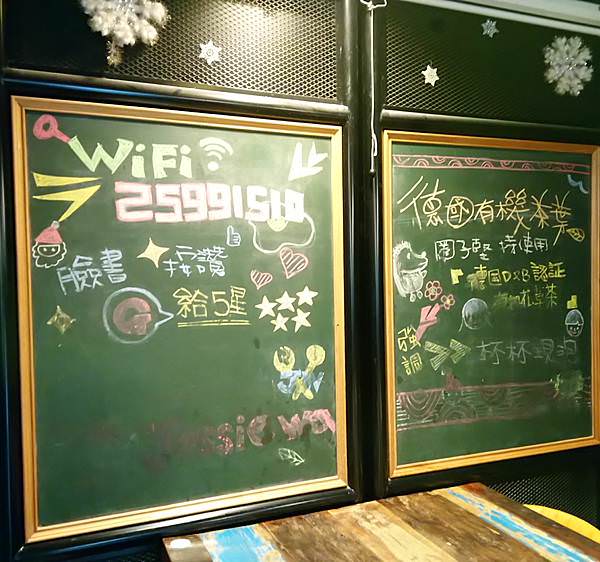 WiFi
25991510
臉書 按讚
給5星
德國有機茶葉
圈子堅持使用
德國DXB認証
有機花草茶
強調
杯杯現泡